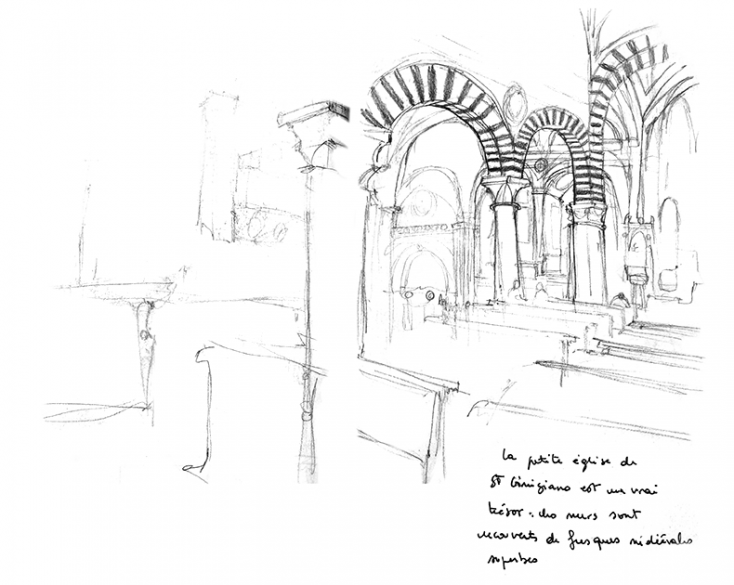 La petite église de
St Gimigiano est un vrai
trésor : les murs sont
recouverts de fresques médiévales
superbes